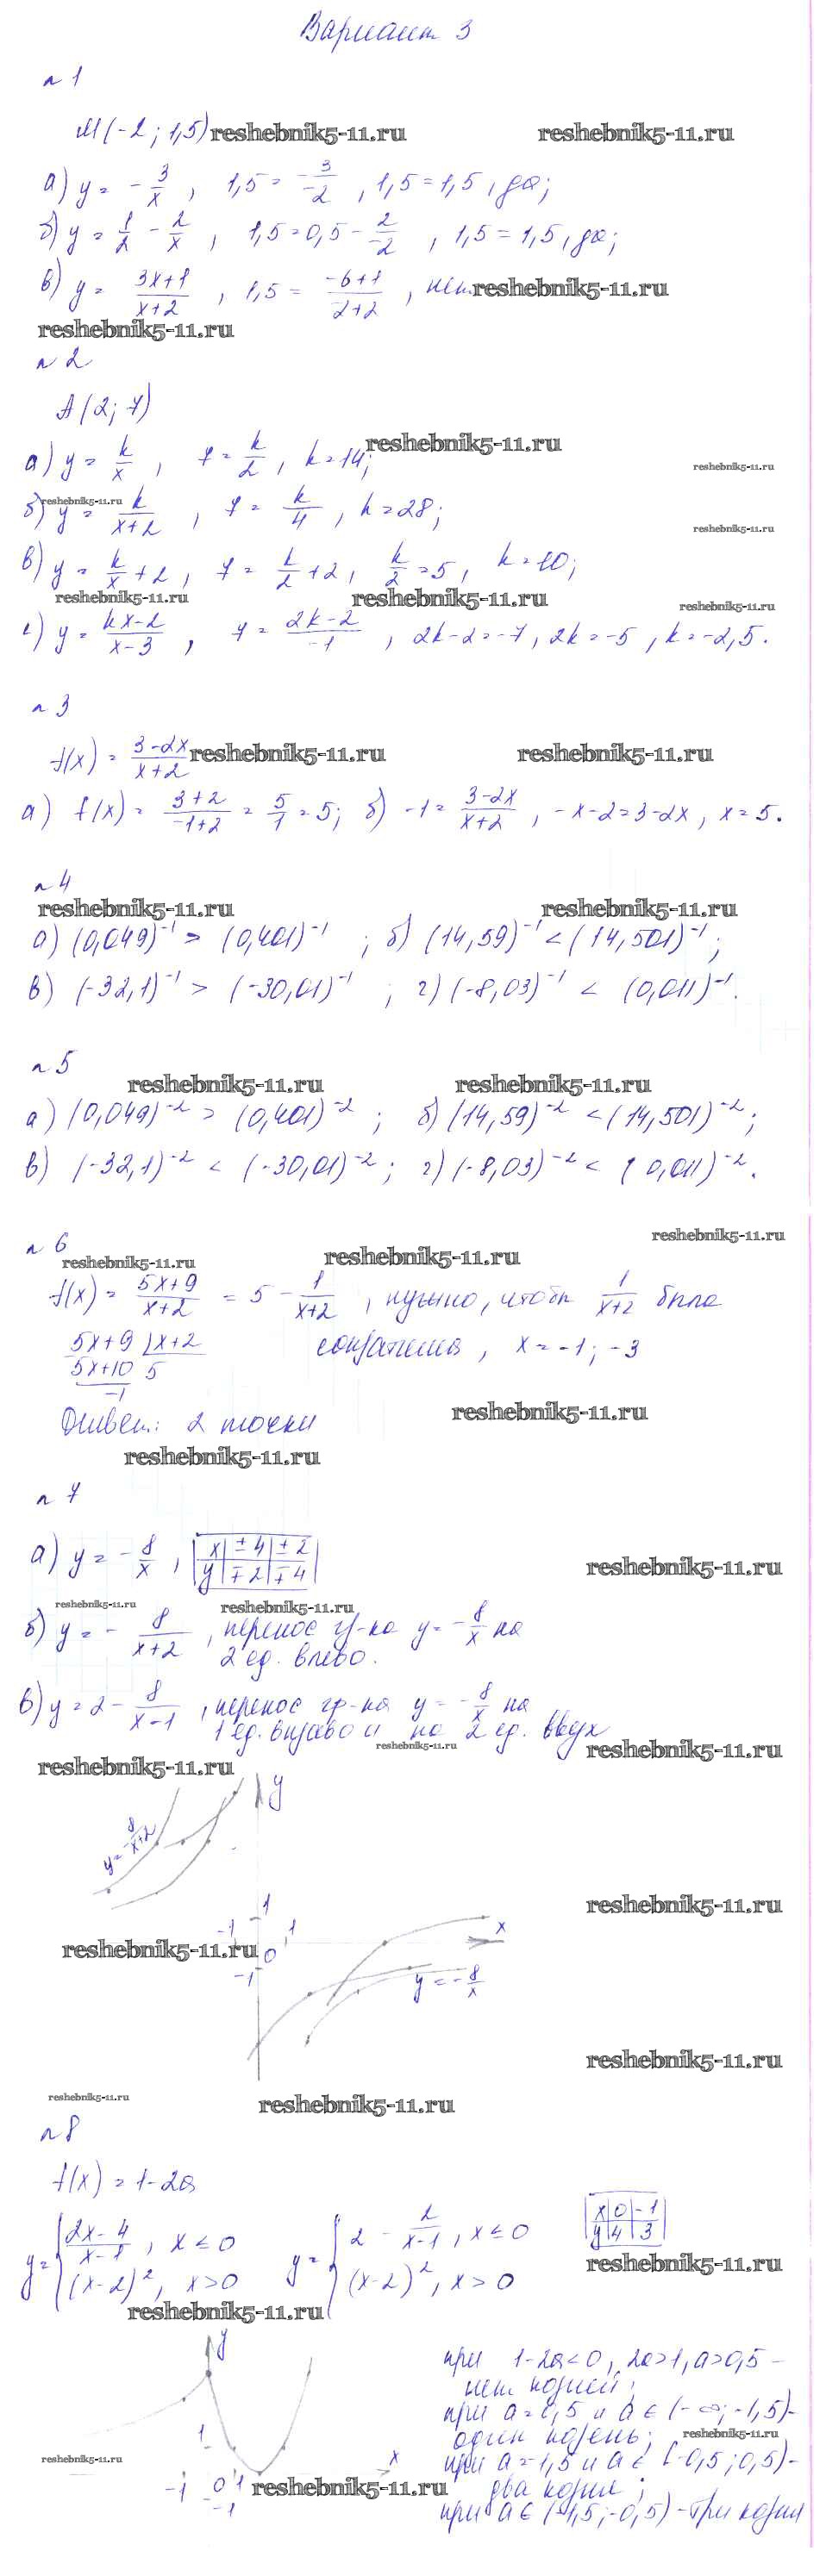 Вариант 3
n 1
M(-2; 1,5) reshebnik5-11.ru reshebnik5-11.ru
а) y = -3/x, 1,5 = -3/-2, 1,5 = 1,5, да;
б) y = 1/2 - 2/x, 1,5 = 0,5 - 2/-2, 1,5 = 1,5, да;
в) y = 3x+1/x+2, 1,5 = -6+1/-2+2, нет. reshebnik5-11.ru
reshebnik5-11.ru
n 2
A(2; 7)
а) y = k/x, 7 = k/2, k = 14; reshebnik5-11.ru
reshebnik5-11.ru
reshebnik5-11.ru
б) y = k/x+2, 7 = k/4, k = 28;
reshebnik5-11.ru
в) y = k/x + 2, 7 = k/2 + 2, k/2 = 5, k = 10;
reshebnik5-11.ru reshebnik5-11.ru reshebnik5-11.ru
г) y = kx-2/x-3, 7 = 2k-2/-1, 2k-2 = -7, 2k = -5, k = -2,5.
n 3
f(x) = 3-2x/x+2 reshebnik5-11.ru reshebnik5-11.ru
а) f(x) = 3+2/-1+2 = 5/1 = 5; б) -1 = 3-2x/x+2, -x-2 = 3-2x, x = 5.
n 4
reshebnik5-11.ru reshebnik5-11.ru
а) (0,049)⁻¹ > (0,401)⁻¹; б) (14,59)⁻¹ < (14,501)⁻¹;
в) (-32,1)⁻¹ > (-30,01)⁻¹; г) (-8,03)⁻¹ < (0,011)⁻¹.
n 5
reshebnik5-11.ru reshebnik5-11.ru
а) (0,049)⁻² > (0,401)⁻²; б) (14,59)⁻² < (14,501)⁻²;
в) (-32,1)⁻² < (-30,01)⁻²; г) (-8,03)⁻² < (0,011)⁻².
reshebnik5-11.ru
n 6
reshebnik5-11.ru reshebnik5-11.ru
f(x) = 5x+9/x+2 = 5 - 1/x+2, нужно, чтобы 1/x+2 была
5x+9 | x+2
5x+10 5
-1
x = -1; -3
reshebnik5-11.ru
Ответ: 2 точки
reshebnik5-11.ru
n 7
а) y = -8/x, x ±4 ±2
y ∓2 ∓4
reshebnik5-11.ru
reshebnik5-11.ru reshebnik5-11.ru
б) y = -8/x+2, перенос гр-ка y = -8/x на
2 ед. влево.
в) y = 2 - 8/x-1, перенос гр-ка y = -8/x на
1 ед. вправо и на 2 ед. вверх
reshebnik5-11.ru
reshebnik5-11.ru
reshebnik5-11.ru
y
y = -8/x+2
1
reshebnik5-11.ru
-1 1 x
reshebnik5-11.ru 0
-1
y = -8/x
reshebnik5-11.ru
reshebnik5-11.ru
reshebnik5-11.ru
n 8
f(x) = 1-2a
y = { 2x-4/x-1, x ≤ 0
(x-2)², x > 0
y = { 2 - 2/x-1, x ≤ 0
(x-2)², x > 0
x 0 -1
y 4 3
reshebnik5-11.ru
reshebnik5-11.ru
y
при 1-2a<0, 2a>1, a>0,5 -
нет корней;
при a = 0,5 и a ∈ (-∞; -1,5) -
один корень; reshebnik5-11.ru
1
при a = 1,5 и a ∈ [-0,5; 0,5) -
два корня;
reshebnik5-11.ru
x
-1 0 1 reshebnik5-11.ru
-1
при a ∈ (-1,5; -0,5) - три корня